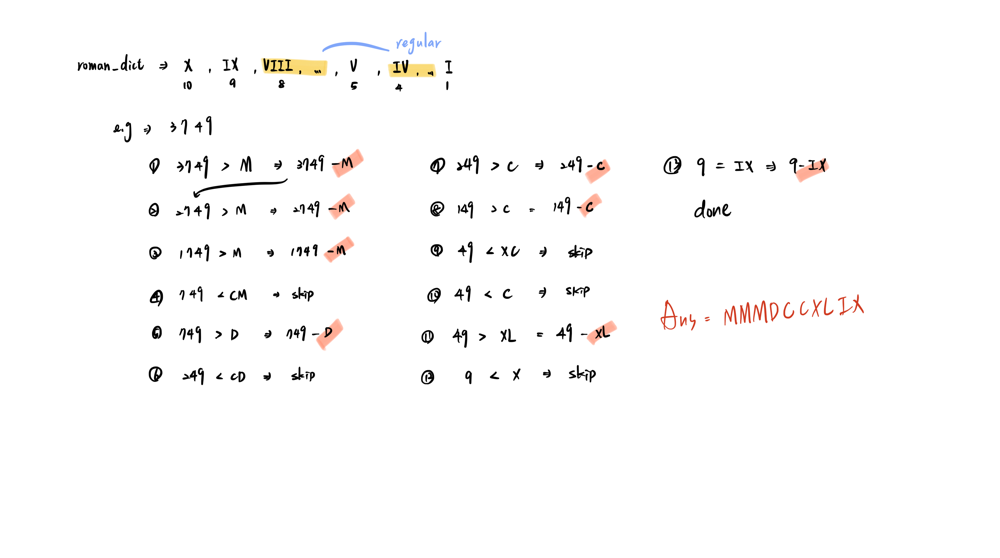 regular
roman_dict ⇒ X , IX , VIII , ... , V , IV , ... I
10 9 8 5 4 1
e.g ⇒ 3749
① 3749 > M ⇒ 3749 - M
② 2749 > M ⇒ 2749 - M
③ 1749 > M ⇒ 1749 - M
④ 749 < CM ⇒ skip
⑤ 749 > D ⇒ 749 - D
⑥ 249 < CD ⇒ skip
⑦ 249 > C ⇒ 249 - C
⑧ 149 > C = 149 - C
⑨ 49 < XC ⇒ skip
⑩ 49 < C ⇒ skip
⑪ 49 > XL = 49 - XL
⑫ 9 < X ⇒ skip
⑬ 9 = IX ⇒ 9 - IX
done
Ans = MMMDCCXLIX